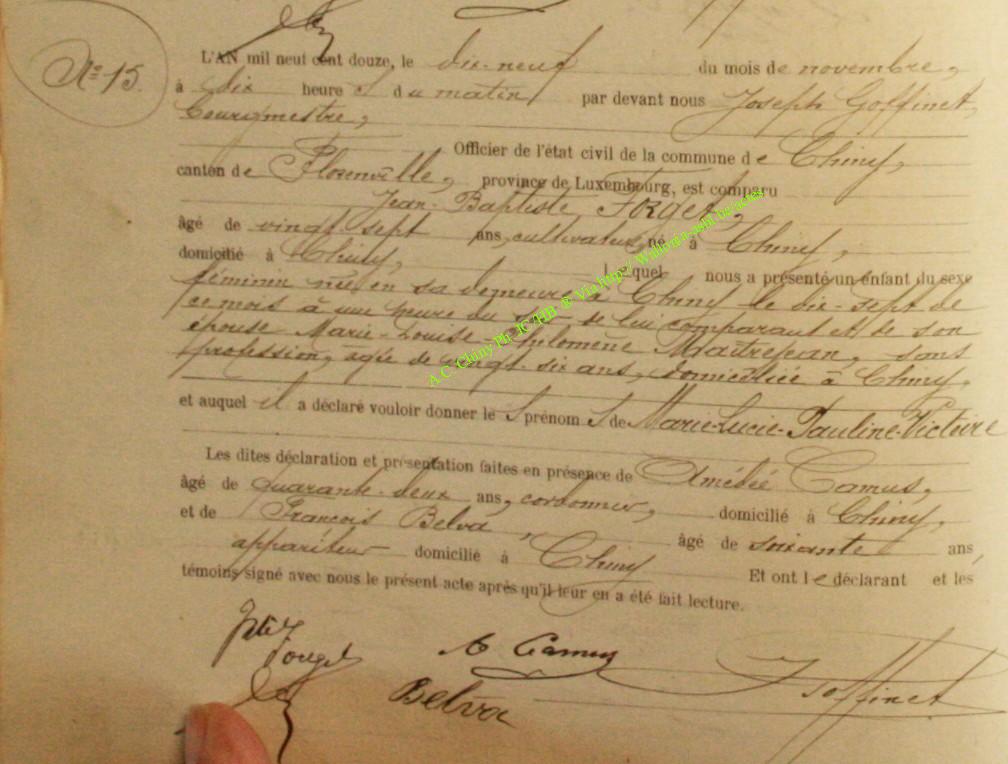 Nº 15.
L'AN mil neuf cent douze, le dix-neuf du mois de novembre,
à dix heures du matin par devant nous Joseph Goffinet,
bourgmestre,
Officier de l'état civil de la commune de Chiny,
canton de Florenville, province de Luxembourg, est comparu
Jean-Baptiste Forget,
âgé de vingt sept ans, cultivateur né à Chiny,
domicilié à Chiny, lequel nous a présenté un enfant du sexe
féminin née en sa demeure à Chiny le dix-sept de
ce mois à une heure du de lui comparant et de son
épouse Marie-Louise-Philomène Maitrejean, sans
profession, agée de vingt-six ans, domiciliée à Chiny,
et auquel il a déclaré vouloir donner les prénoms de Marie-Lucie-Pauline-Victoire
Les dites déclaration et présentation faites en présence de Amédée Camus,
âgé de quarante-deux ans, cordonnier, domicilié à Chiny,
et de François Belva, âgé de soixante ans,
appariteur domicilié à Chiny Et ont le déclarant et les
témoins signé avec nous le présent acte après qu'il leur en a été fait lecture.
A.C. Chiny Ph. JC HB ® Via http://Wallonia.asbl.be/actes
Jbte Forget
A Camus
J Goffinet
Belva